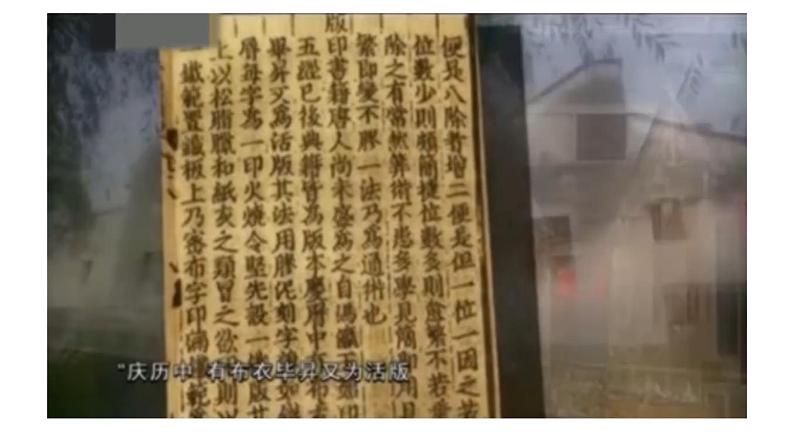 便是八除者增二便是但一位一因之若
位數少則頗簡捷位數多則愈繁不若乘
除之有常然筭術不患多學見簡即用見
繁即變不膠一法乃為通術也
版印書籍唐人尚未盛為之自馮瀛王始印
五經已後典籍皆為版本慶曆中有布衣
畢昇又為活版其法用膠泥刻字如錢
脣每字為一印火燒令堅先設一版其
上以松脂臘和紙灰之類冒之欲則以
鐵範置鐵板上乃密布字印滿鐵範
“庆历中 有布衣毕昇又为活版